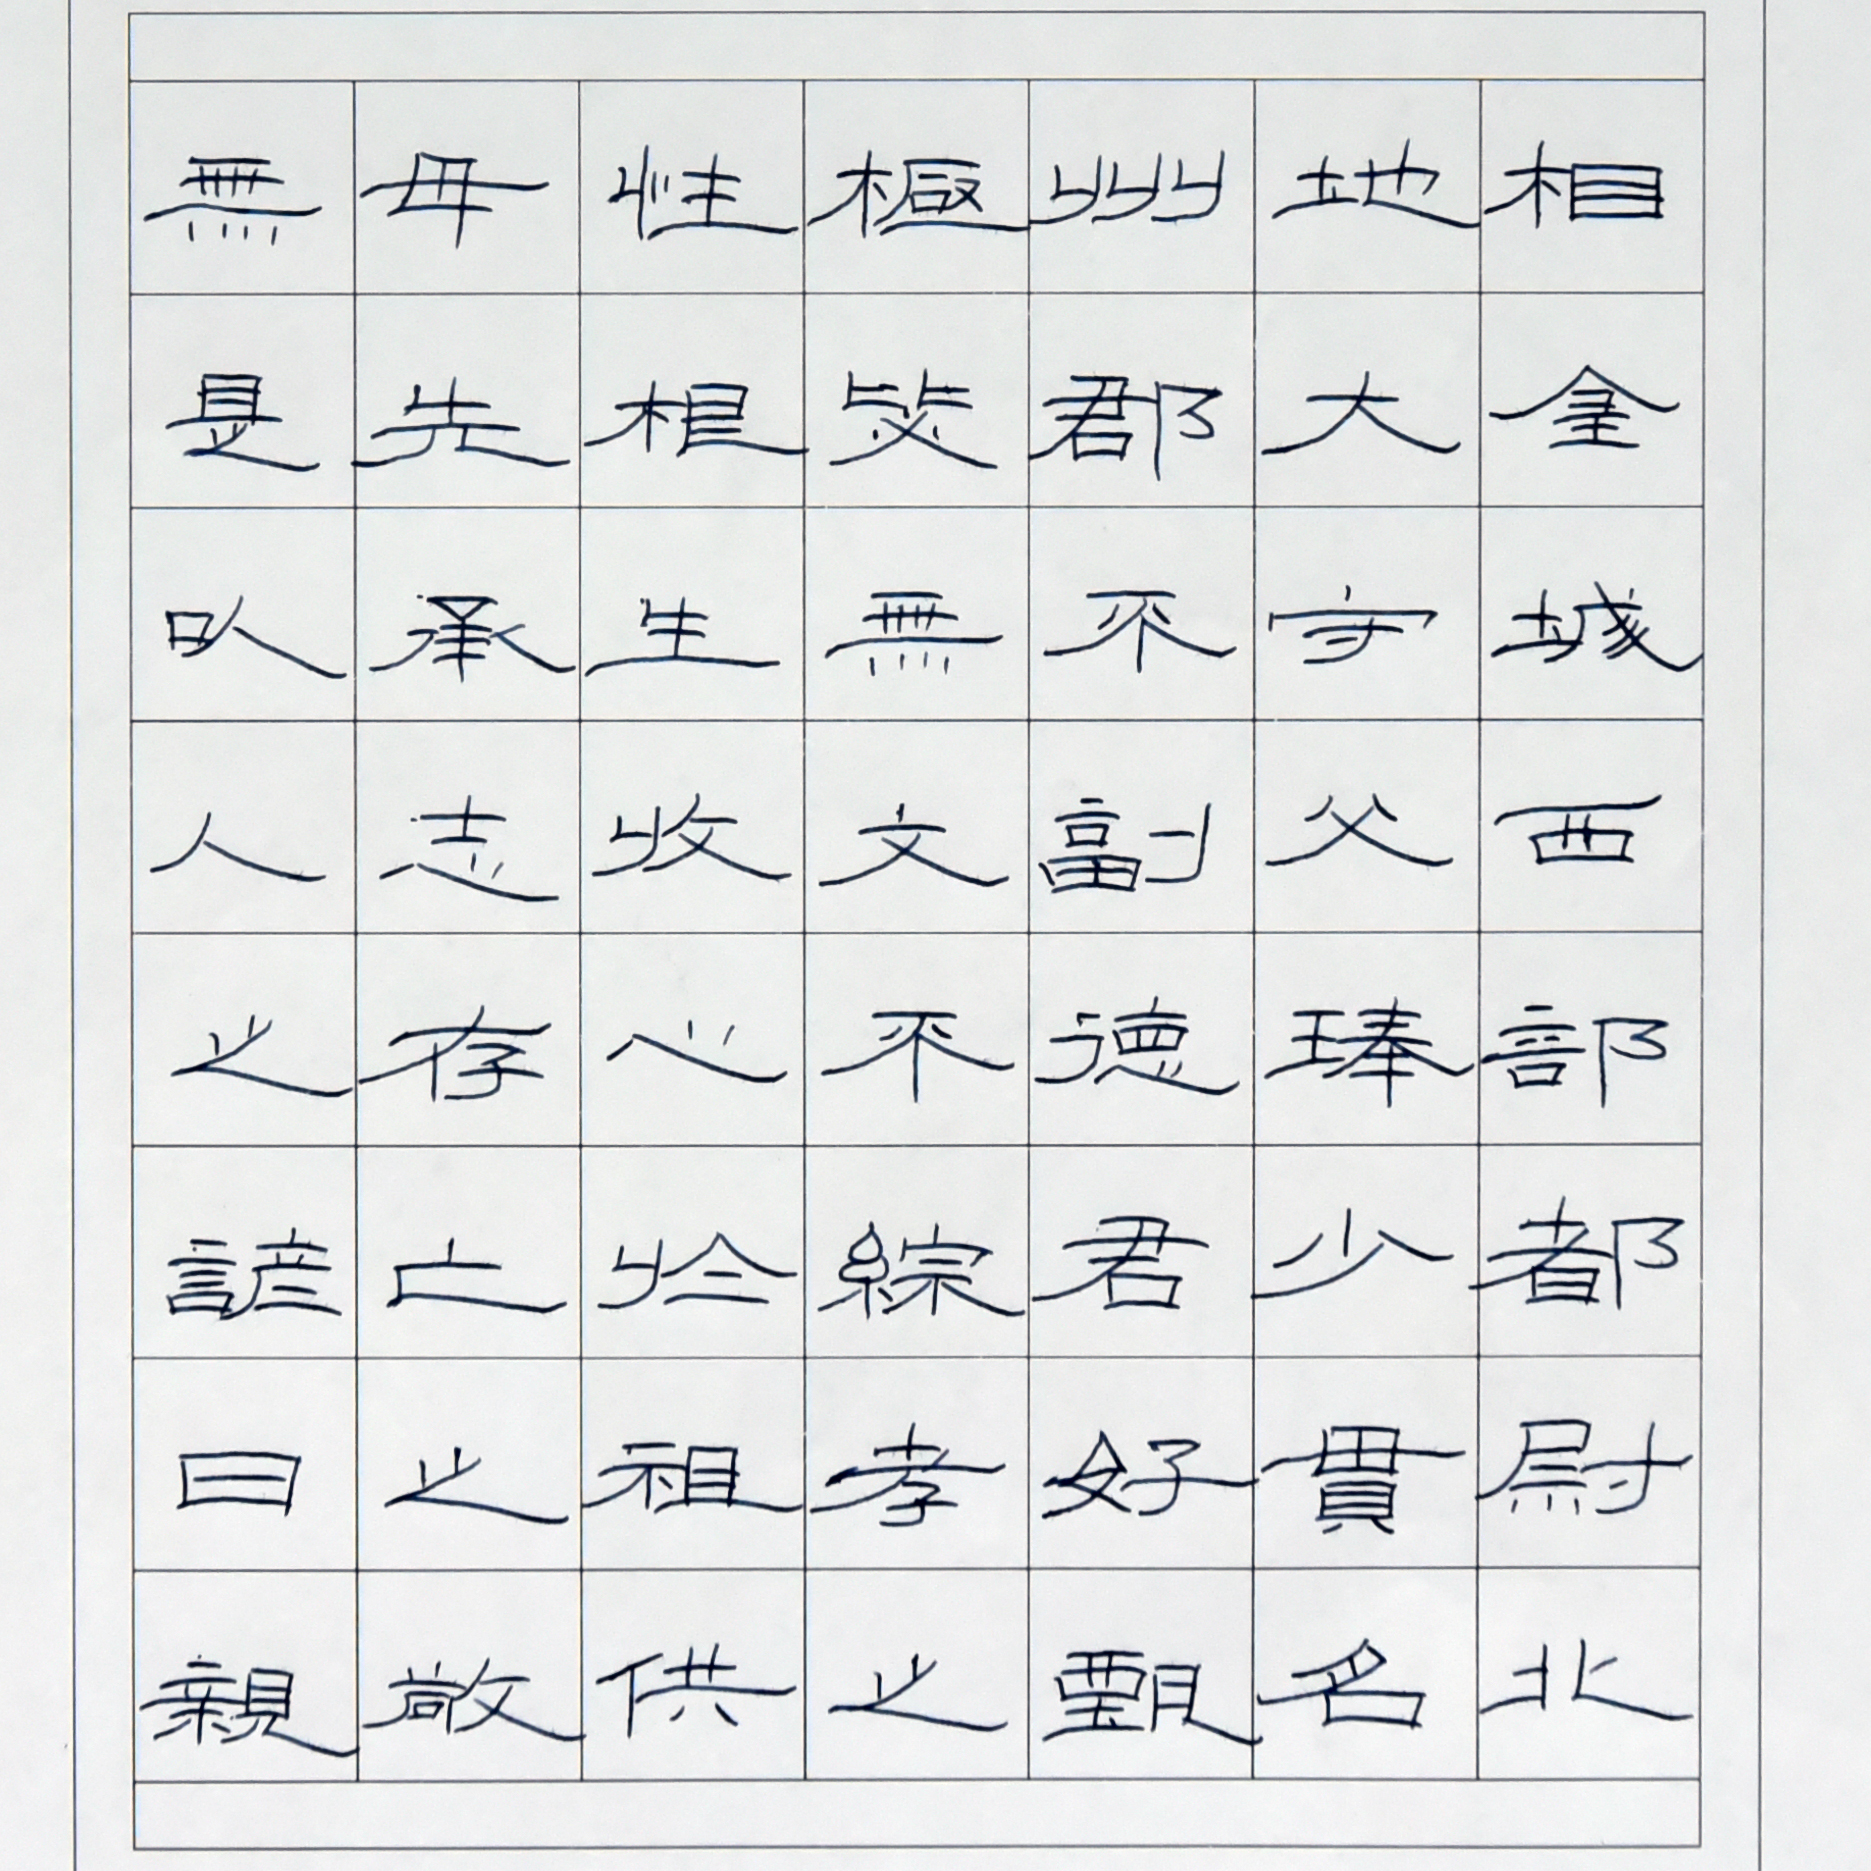 相金城西部都尉北
地大守父琫少貫名
州郡不副德君好甄
極毖無文不綜孝之
性根生收心於祖供
母先承志存亡之敬
無是以人之諺曰親